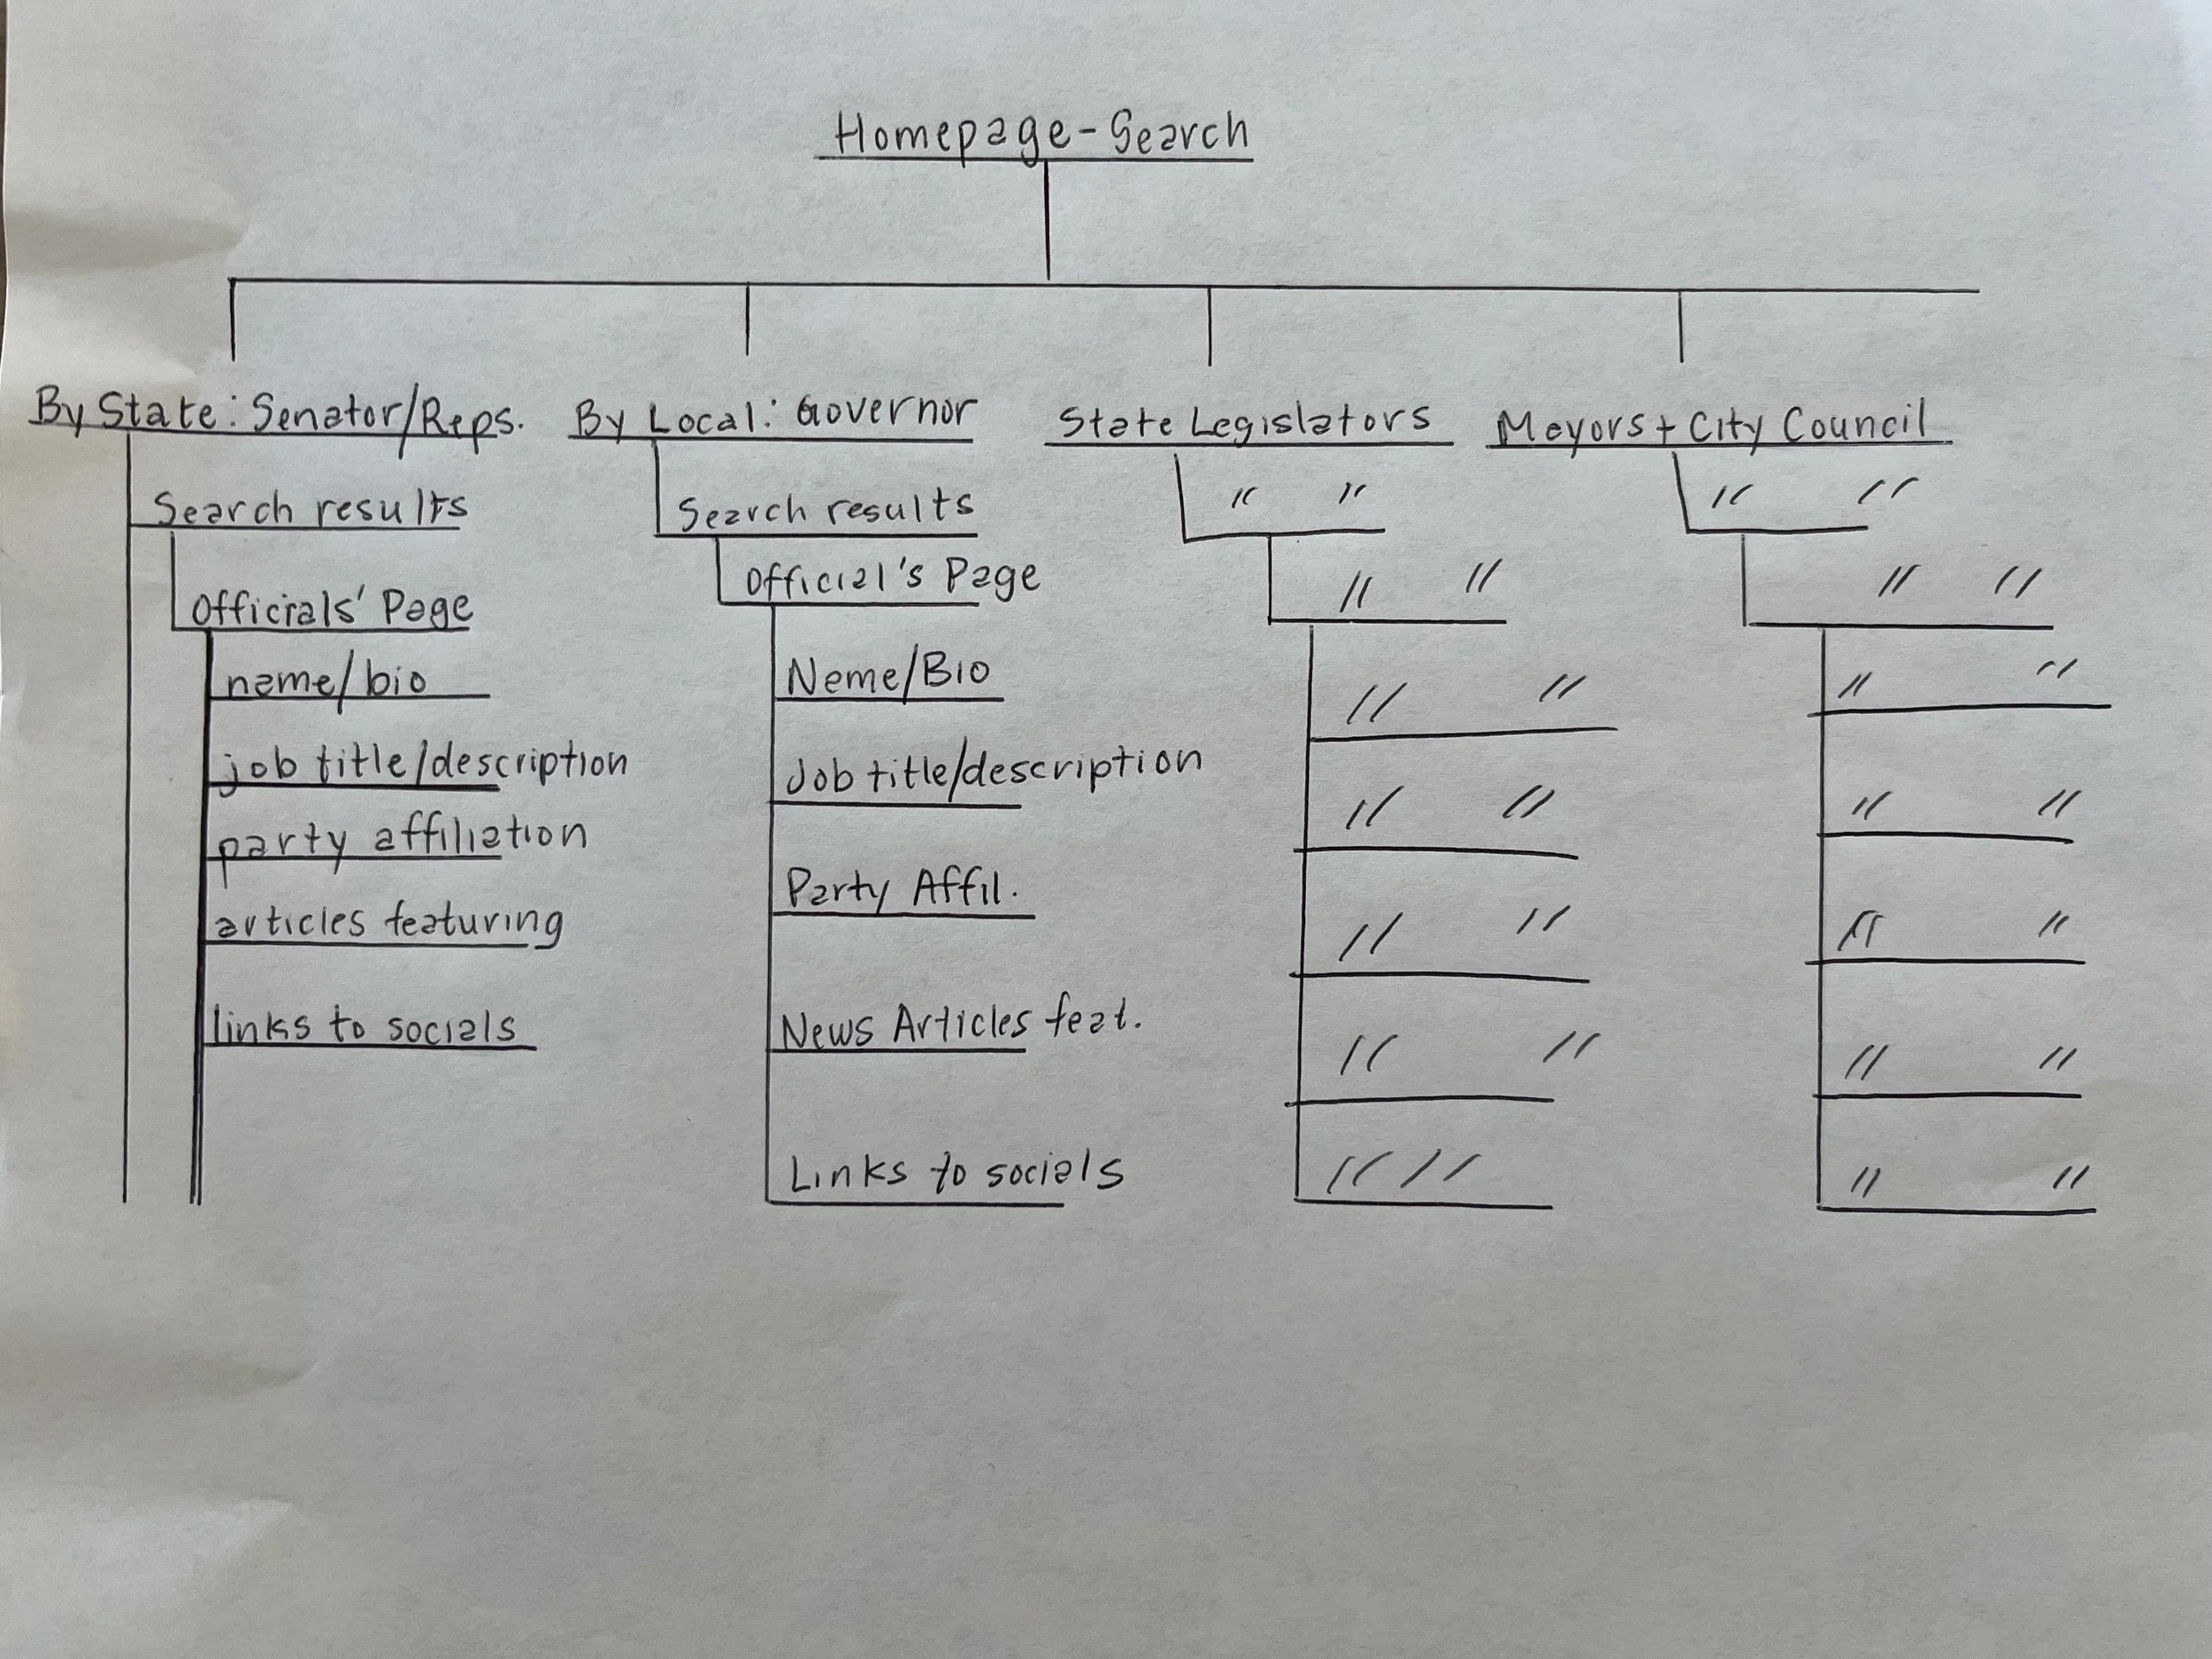 Homepage - Search
By State: Senator/Reps.
Search results
Officials' Page
name/bio
job title/description
party affiliation
articles featuring
links to socials
By Local: Governor
Search results
Official's Page
Name/Bio
Job title/description
Party Affil.
News Articles feat.
Links to socials
State Legislators
" "
" "
" "
" "
" "
" "
" "
Mayors + City Council
" "
" "
" "
" "
" "
" "
" "